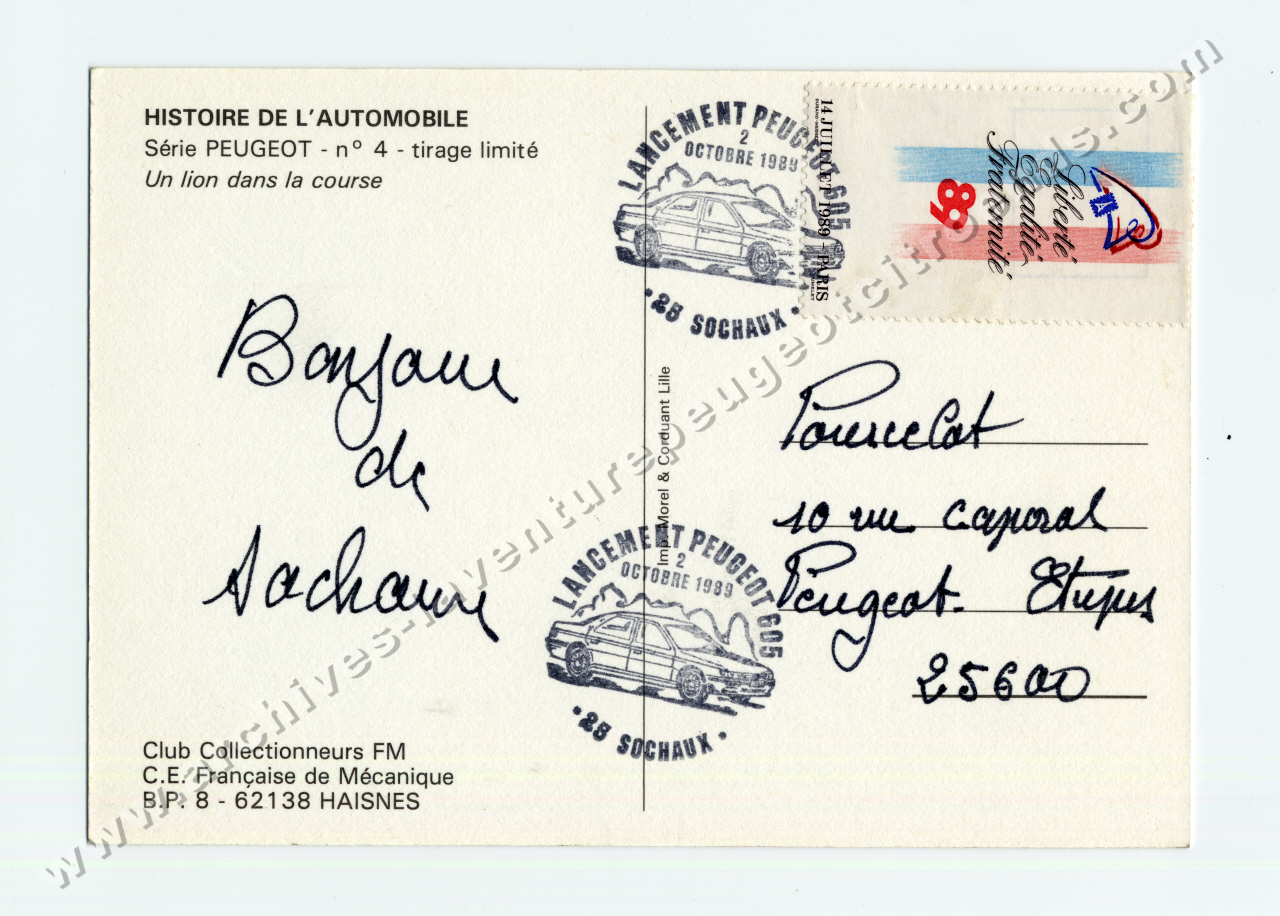 HISTOIRE DE L'AUTOMOBILE
Série PEUGEOT - nº 4 - tirage limité
Un lion dans la course
Bonjour
de
Sochaux
Club Collectionneurs FM
C.E. Française de Mécanique
B.P. 8 - 62138 HAISNES
Imp. Morel & Corduant Lille
LANCEMENT PEUGEOT 605
2
OCTOBRE 1989
• 25 SOCHAUX •
14 JUILLET 1989 - PARIS
Liberté
Egalité
Fraternité
89
Pourcelot
10 rue Caporal
Peugeot. Etupes
25600
LANCEMENT PEUGEOT 605
2
OCTOBRE 1989
• 25 SOCHAUX •
www.archives-laventurepeugeotcitroends.com